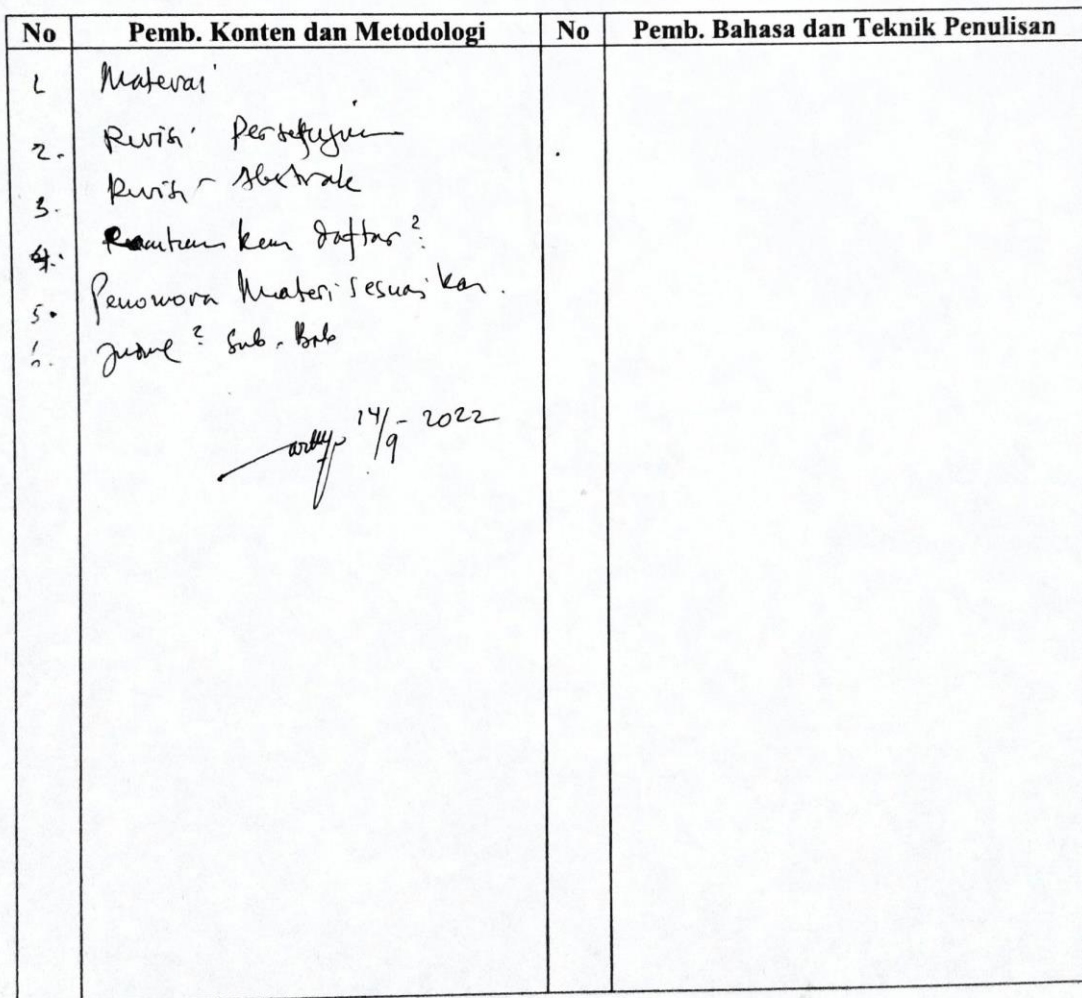 No Pemb. Konten dan Metodologi No Pemb. Bahasa dan Teknik Penulisan
1 Materai
2. Revisi Persetujuan
3. Revisi Abstrak
4. kan daftar²
5. Penomora Materi sesuaikan.
Judul² Sub. Bab
14/9 - 2022